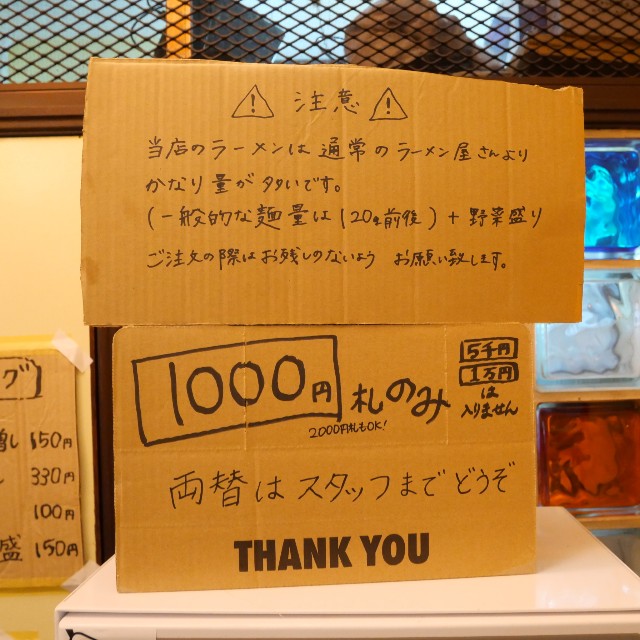 ⚠ 注意 ⚠
当店のラーメンは通常のラーメン屋さんより
かなり量が多いです。
(一般的な麺量は120g前後)+野菜盛り
ご注文の際はお残しのないよう お願い致します。
1000円札のみ
2000円札もOK!
5千円
1万円
は
入りません
両替はスタッフまでどうぞ
THANK YOU
グ
増し 150円
330円
100円
盛 150円